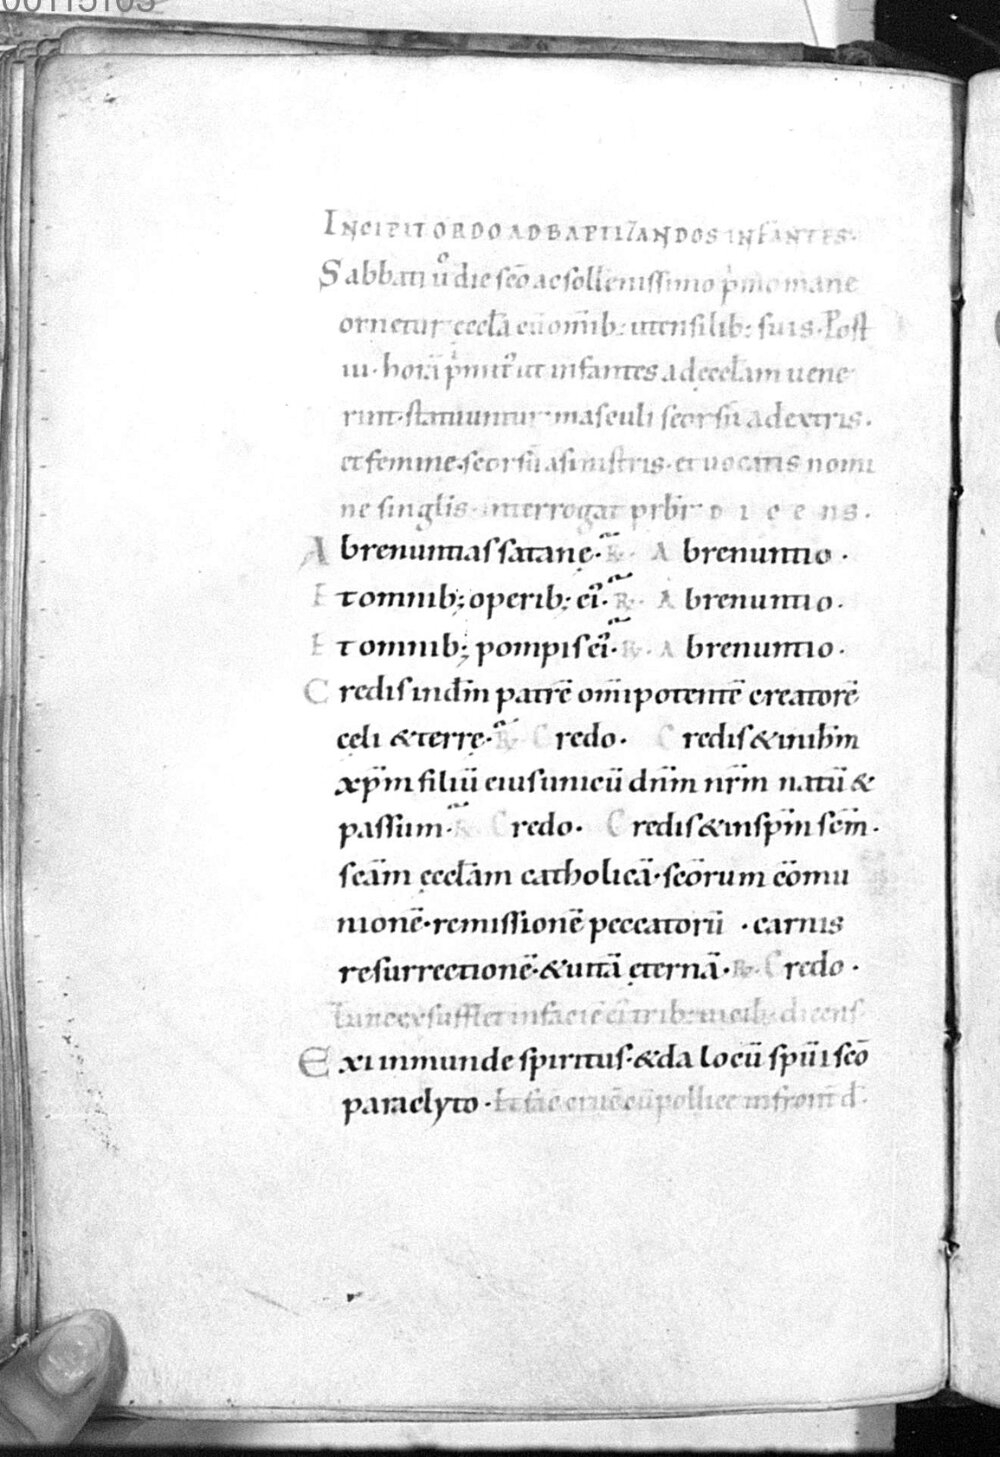 00115103
INCIPIT ORDO AD BAPTIZANDOS INFANTES·
Sabbati ů die scō ac sollenissimo p̄mo mane
ornetur eccl̄a cū om̄ib: utensilib: suis· Post
iii· horā p̄mittit̄ ut infantes ad eccl̄am uene
rint· statuuntur masculi seorsū a dextris·
et femine· seorsū a sinistris· et uocatis nomi
ne singlis interrogat prb̄r dicens·
Abrenuntias satane· R̷· Abrenuntio·
Et omnib; operib; ei᾽· R̷· Abrenuntio·
Et omnib; pompis ei᾽· R̷· Abrenuntio·
Credis in dm̄ patrē om̄ipotentē creatorē
cęli & terrę· R̷· Credo· Credis & in ihm̄
xp̄m filiū eius unicū dn̄m nr̄m natū &
passum· R̷· Credo· Credis & in sp̄m scm̄·
scām ęccl̄am catholicā· scōrum cōmu
nionē· remissionē peccatorū · carnis
resurrectionē· & uitā ęternā· R̷· Credo·
Tunc exsufflet in faciē ei᾽ trib: uicib; dicens·
Exi inmunde spiritus· & da locū sp̄ui scō
paraclyto· Et fac crucē cū pollice in front̄ d̄·